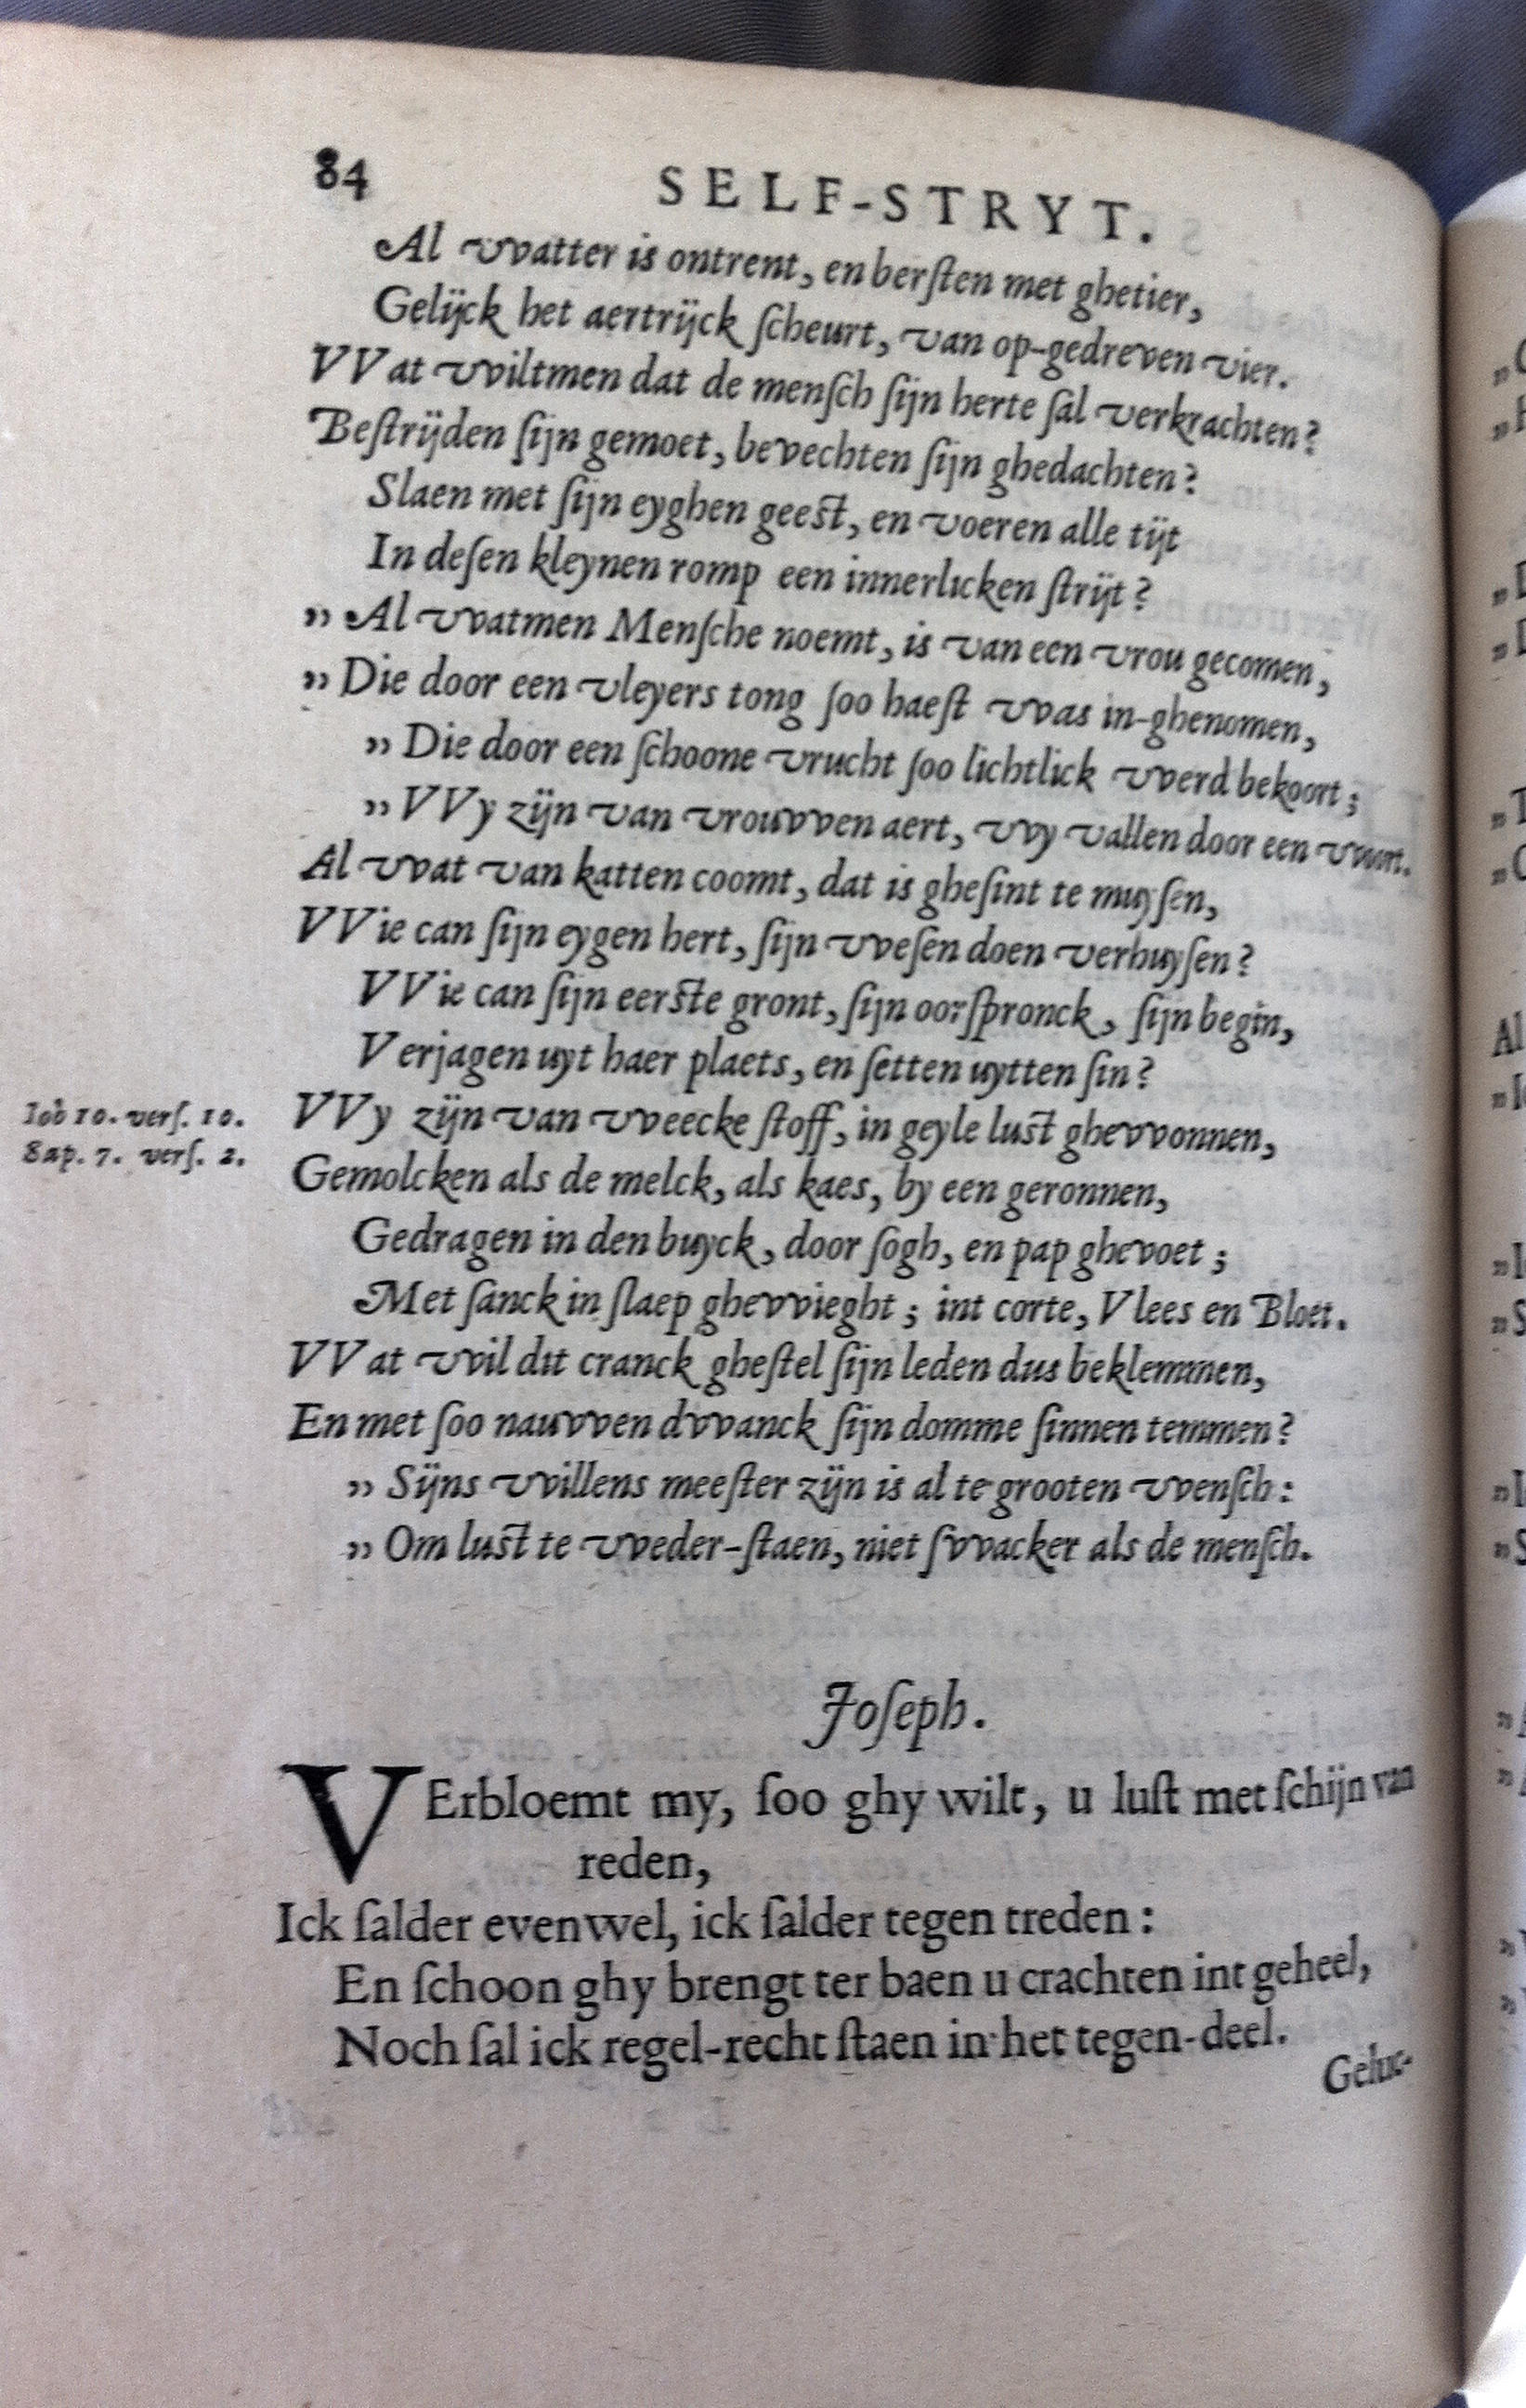 84 SELF-STRYT.
Al vvatter is ontrent, en berſten met ghetier,
Gelijck het aertrijck ſcheurt, van op-gedreven vier.
VVat vviltmen dat de menſch ſijn herte ſal verkrachten?
Beſtrijden ſijn gemoet, bevechten ſijn ghedachten?
Slaen met ſijn eyghen geeſt, en voeren alle tijt
In deſen kleynen romp een innerlicken ſtrijt?
„ Al vvatmen Menſche noemt, is van een vrou gecomen,
„ Die door een vleyers tong ſoo haeſt vvas in-ghenomen,
„ Die door een ſchoone vrucht ſoo lichtlick vverd bekoort;
„ VVy zijn van vrouvven aert, vvy vallen door een vvort.
Al vvat van katten coomt, dat is gheſint te muyſen,
VVie can ſijn eygen hert, ſijn vveſen doen verhuyſen?
VVie can ſijn eerſte gront, ſijn oorſpronck, ſijn begin,
Verjagen uyt haer plaets, en ſetten uytten ſin?
Iob 10. verſ. 10.
Sap. 7. verſ. 2.
VVy zijn van vveecke ſtoff, in geyle luſt ghevvonnen,
Gemolcken als de melck, als kaes, by een geronnen,
Gedragen in den buyck, door ſogh, en pap ghevoet;
Met ſanck in ſlaep ghevvieght; int corte, Vlees en Bloet.
VVat vvil dit cranck gheſtel ſijn leden dus beklemmen,
En met ſoo nauvven dvvanck ſijn domme ſinnen temmen?
„ Sijns vvillens meeſter zijn is al te grooten vvenſch:
„ Om luſt te vveder-ſtaen, niet ſvvacker als de menſch.
Joſeph.
VErbloemt my, ſoo ghy wilt, u luſt met ſchijn van
reden,
Ick ſalder evenwel, ick ſalder tegen treden:
En ſchoon ghy brengt ter baen u crachten int geheel,
Noch ſal ick regel-recht ſtaen in het tegen-deel.
Geluc-